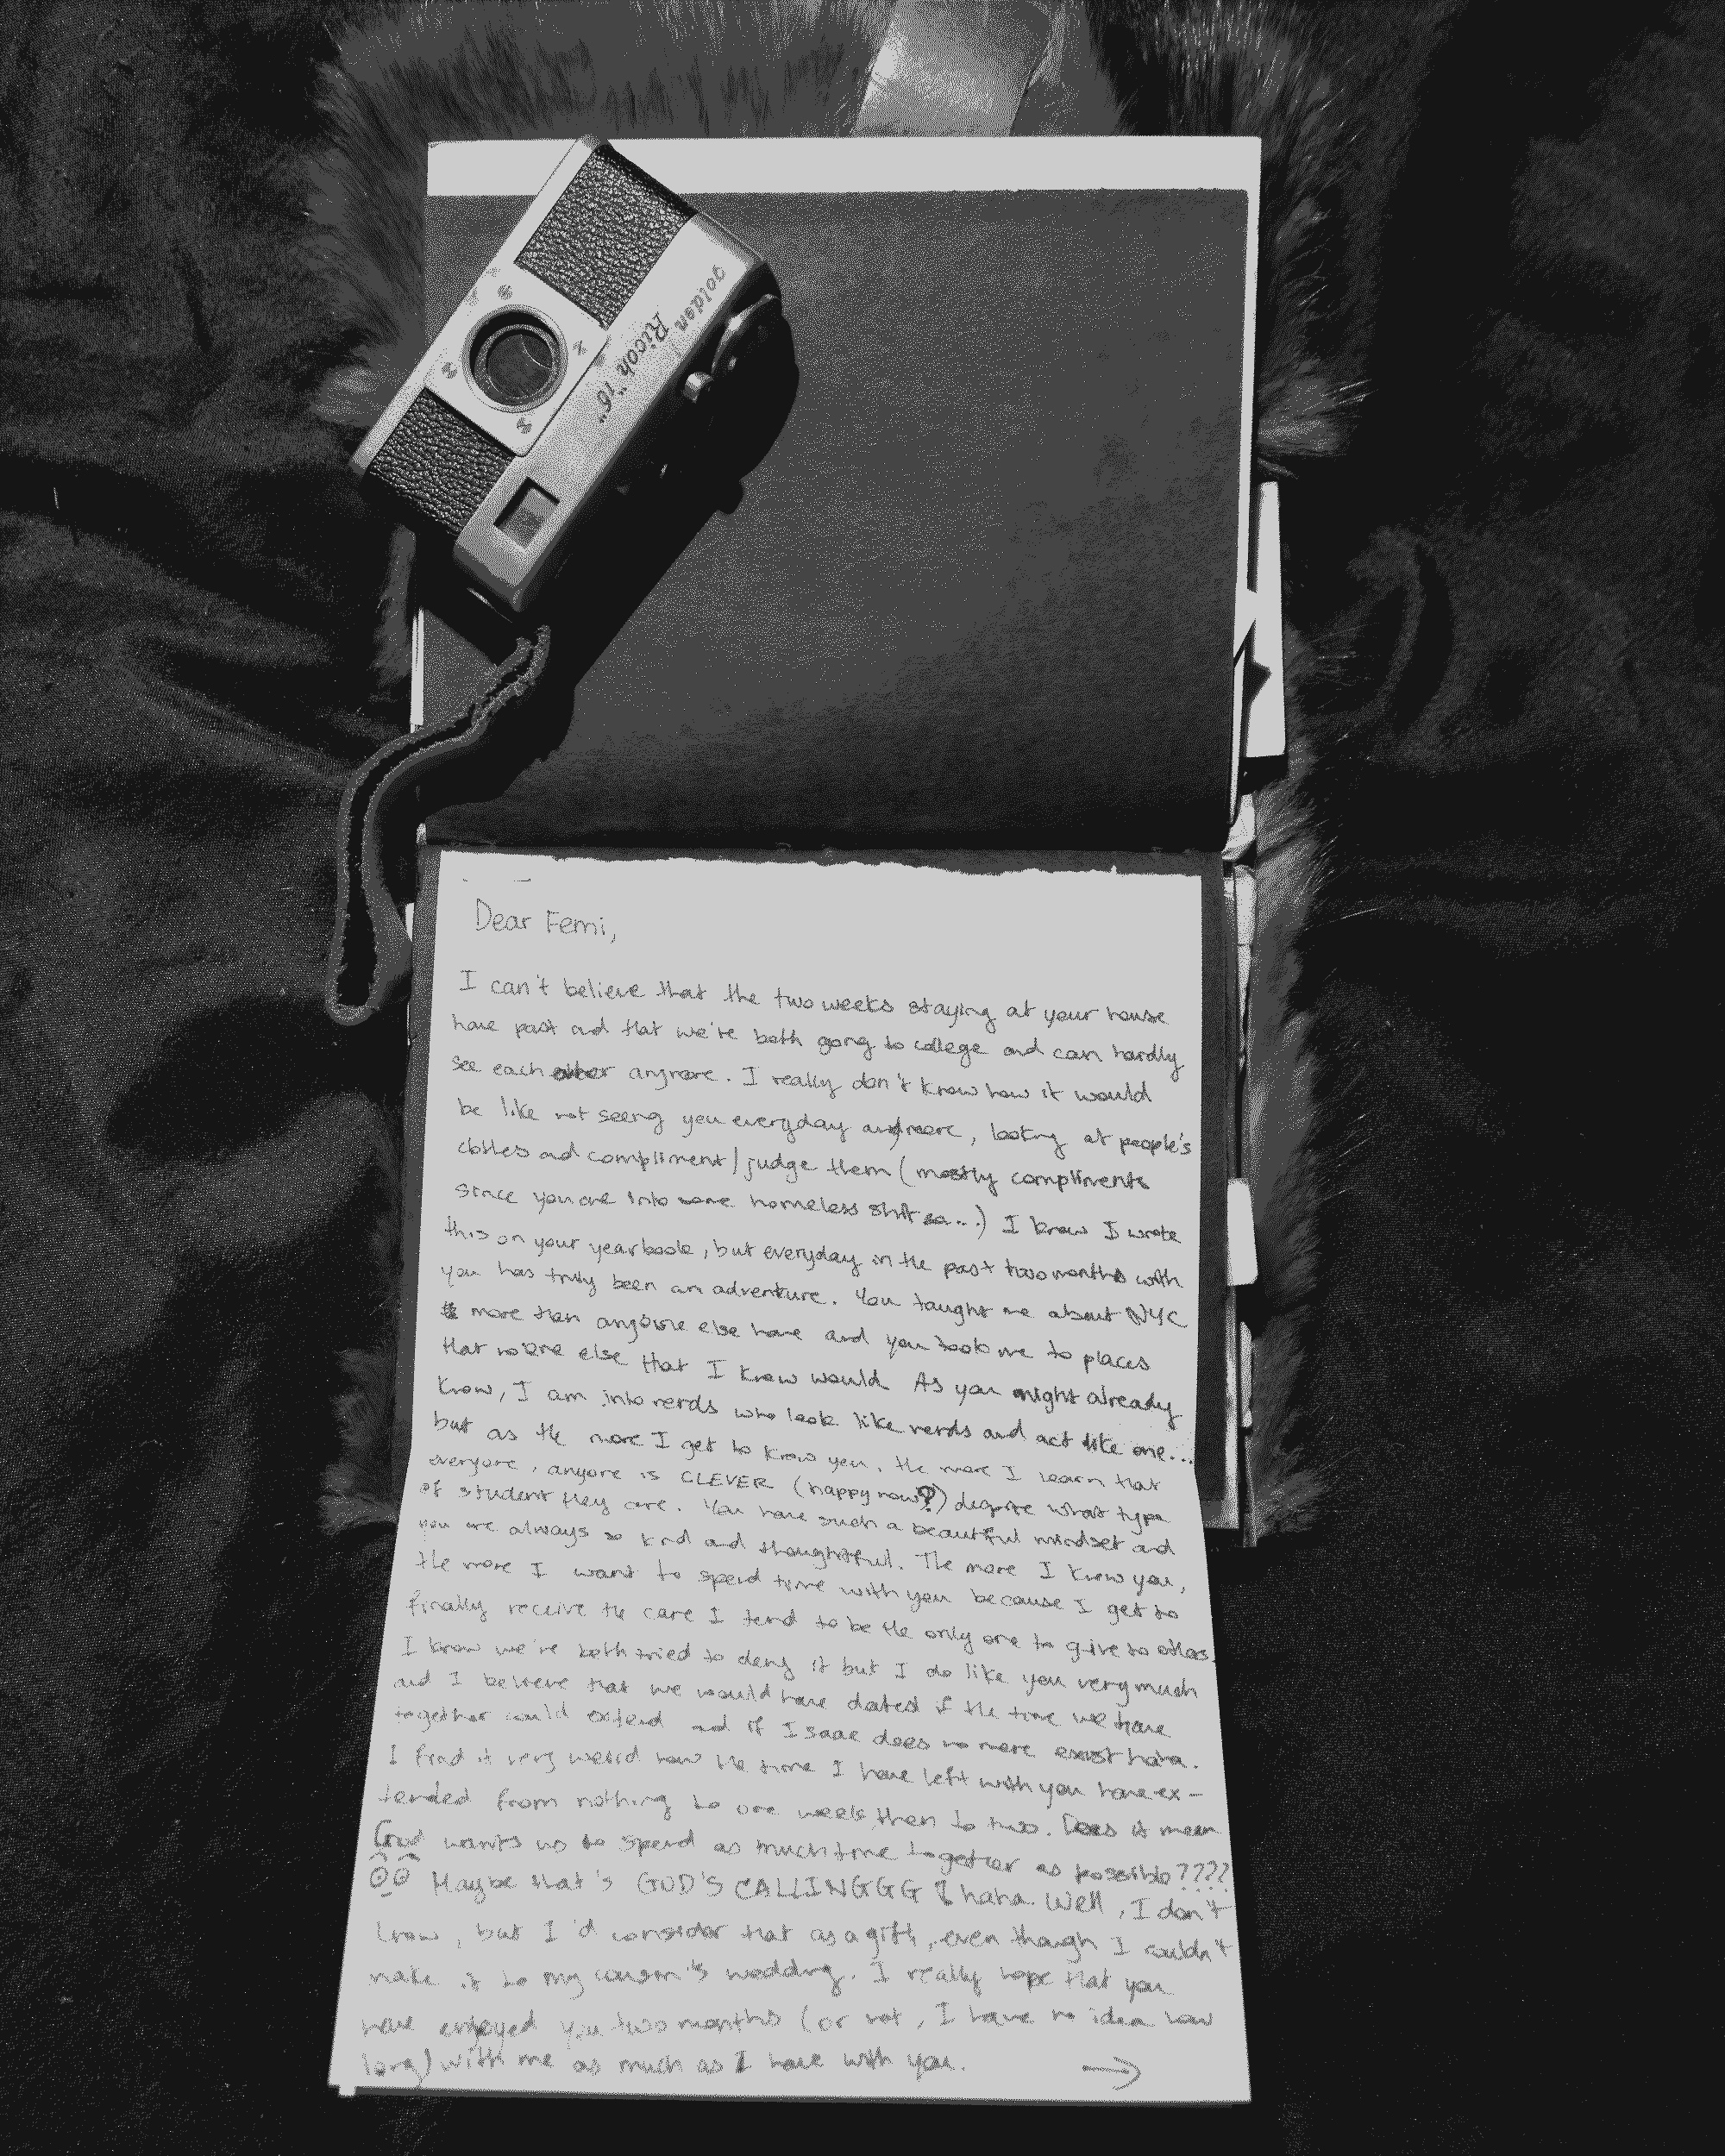 golden Ricoh "16"
Dear Femi,
I can't believe that the two weeks staying at your house
have past and that we're both going to college and can hardly
see each other anymore. I really don't know how it would
be like not seeing you everyday anymore, looking at people's
clothes and compliment/judge them (mostly compliments
since you are into some homeless shit so...) I know I wrote
this on your yearbook, but everyday in the past two months with
you has truly been an adventure. You taught me about NYC
more then anyone else have and you took me to places
that no one else that I know would. As you might already
know, I am into nerds who look like nerds and act like one...
but as the more I get to know you, the more I learn that
everyone, anyone is CLEVER (happy now?) despite what type
of student they are. You have such a beautiful mindset and
you are always so kind and thoughtful. The more I know you,
the more I want to spend time with you because I get to
finally receive the care I tend to be the only one to give to others.
I know we're both tried to deny it but I do like you very much
and I believe that we would have dated if the time we have
together could extend and if Isaac does no more exist haha.
I find it very weird how the time I have left with you have ex-
tended from nothing to one week then to two. Does it mean
God wants us to spend as much time together as possible????
Maybe that's GOD'S CALLINGGG haha. Well, I don't
know, but I'd consider that as a gift, even though I couldn't
make it to my cousin's wedding. I really hope that you
have enjoyed you two months (or not, I have no idea how
long) with me as much as I have with you. →